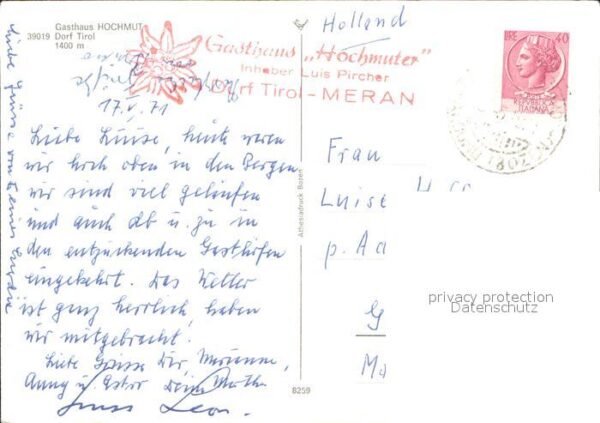 Gasthaus HOCHMUT
39019 Dorf Tirol
1400 m
Holland
Gasthaus „Hochmuter"
Inhaber Luis Pircher
Dorf Tirol - MERAN
LIRE 40
REPUBBLICA
ITALIANA
17.V.71
Liebe Luise, heute waren
wir hoch oben in den Bergen
wir sind viel gelaufen
und auch ab u. zu in
den entzückenden Gasthöfen
eingekehrt. Das Wetter
ist ganz herrlich, haben
wir mitgebracht.
Liebe Grüsse Dir, Marianne,
Gruss Leon.
Liebe Grüsse von
Frau
Luise
p. Aa
G
Ma
Athesiadruck Bozen
8259
privacy protection
Datenschutz